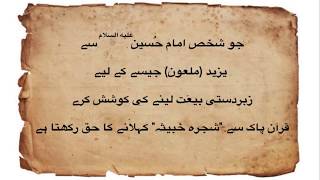 جو شخص امام حُسین علیہ السلام سے
یزید (ملعون) جیسے کے لیے
زبردستی بیعَت لینے کی کوشش کرے
قرآنِ پاک سے "شجرہ خبیثہ" کہلانے کا حق رکھتا ہے